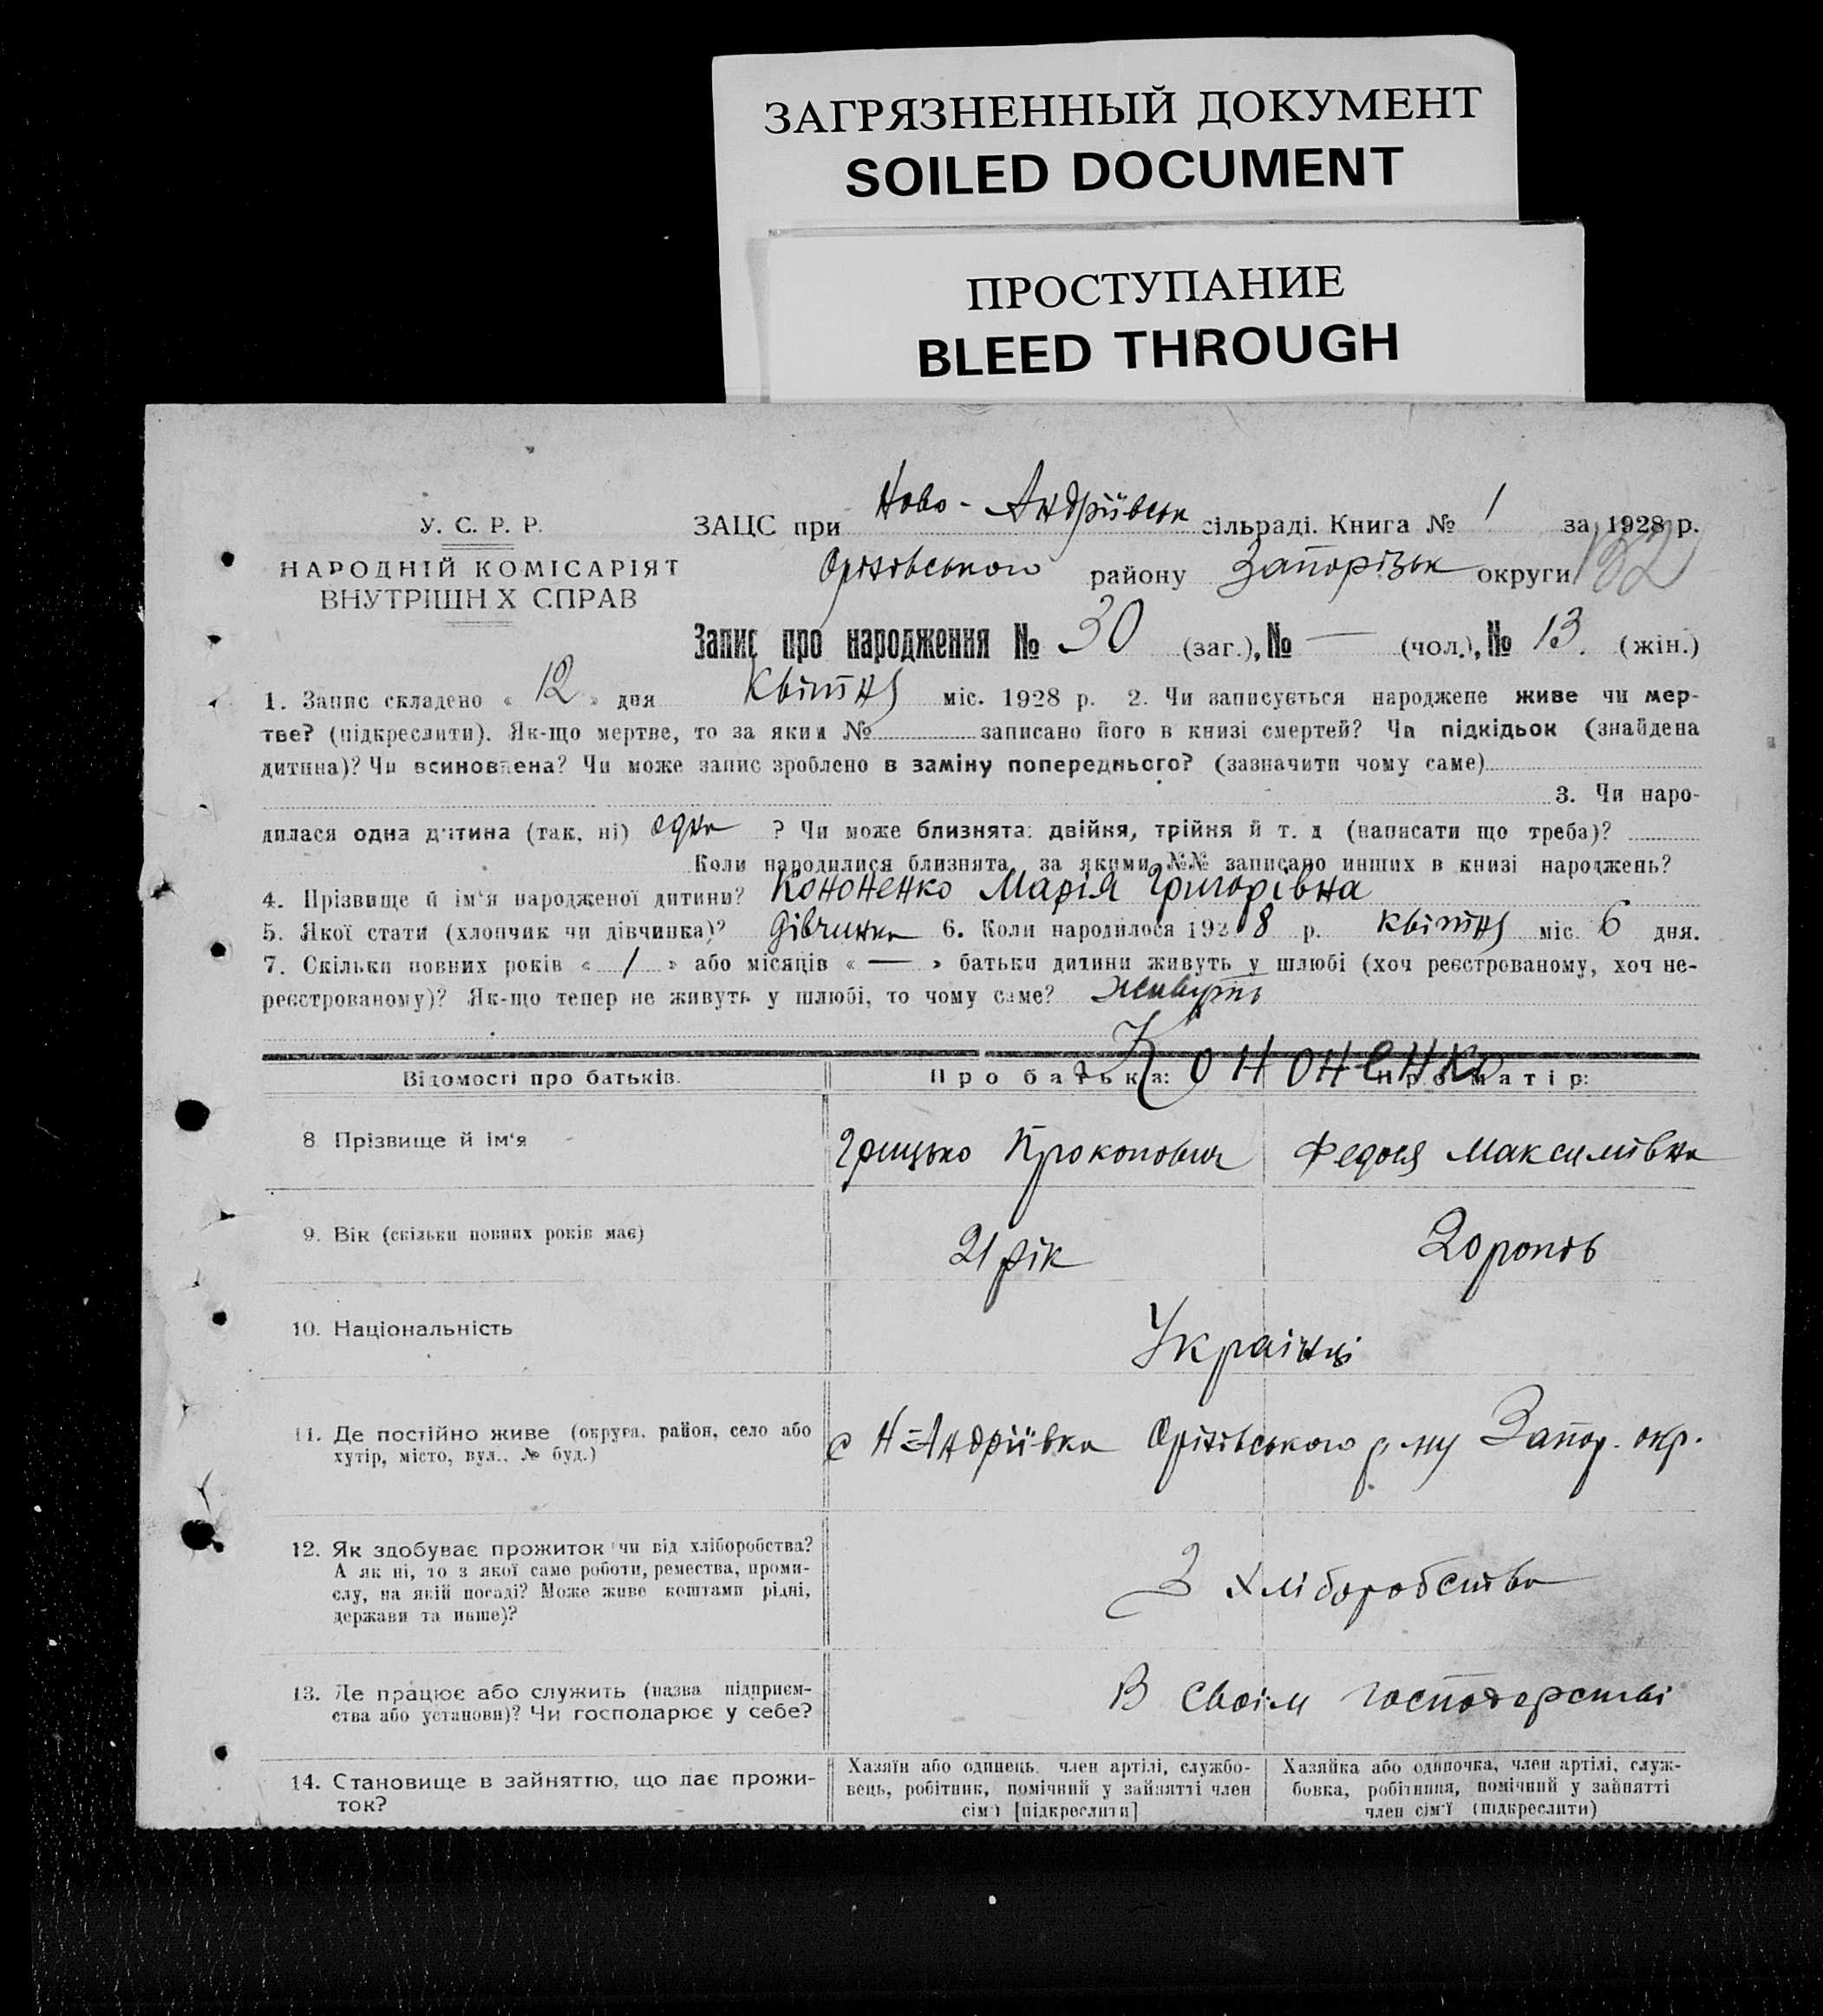 ЗАГРЯЗНЕННЫЙ ДОКУМЕНТ
SOILED DOCUMENT
ПРОСТУПАНИЕ
BLEED THROUGH
У. С. Р. Р.
НАРОДНІЙ КОМІСАРІЯТ
ВНУТРІШН Х СПРАВ
ЗАЦС при Ново-Андріївськ сільраді. Книга № 1 за 1928 р.
Оріхівського району Запорізьк округи 132
Запис про народження № 30 (заг.), № — (чол.), № 13. (жін.)
1. Запис складено « 12 » дня квітня міс. 1928 р. 2. Чи записується народжене живе чи мер-
тве? (підкреслити). Як-що мертве, то за яким № записано його в книзі смертей? Чи підкідьок (знайдена
дитина)? Чи всиновлена? Чи може запис зроблено в заміну попереднього? (зазначити чому саме)
3. Чи наро-
дилася одна дитина (так, ні) одна ? Чи може близнята: двійня, трійня й т. д (написати що треба)?
Коли народилися близнята, за якими №№ записано инших в книзі народжень?
4. Прізвище й ім'я народженої дитини? Кононенко Марія Григорівна
5. Якої стати (хлопчик чи дівчинка)? дівчинка 6. Коли народилося 1928 р. квітня міс. 6 дня.
7. Скільки повних років « 1 » або місяців « — » батьки дитини живуть у шлюбі (хоч реєстрованому, хоч не-
реєстрованому)? Як-що тепер не живуть у шлюбі, то чому саме? живуть
Відомості про батьків. Про батька: Про матір:
Кононенко
8 Прізвище й ім'я Грицько Прокопович Федося Максимівна
9. Вік (скільки повних років має) 21 рік 20 років
10. Національність Українці
11. Де постійно живе (округа, район, село або
хутір, місто, вул., № буд.)
с Н-Андріївка Оріхівського р-ну Запор. окр.
12. Як здобуває прожиток чи від хліборобства?
А як ні, то з якої саме роботи, ремества, проми-
слу, на якій посаді? Може живе коштами рідні,
держави та инше)?
З хліборобства
13. Де працює або служить (назва підприєм-
ства або установи)? Чи господарює у себе?
В своїм господарстві
14. Становище в зайняттю, що дає прожи-
ток?
Хазяїн або одинець, член артілі, службо-
вець, робітник, помічний у зайнятті член
сім'ї [підкреслити]
Хазяйка або одиночка, член артілі, служ-
бовка, робітниця, помічний у зайнятті
член сім'ї (підкреслити)